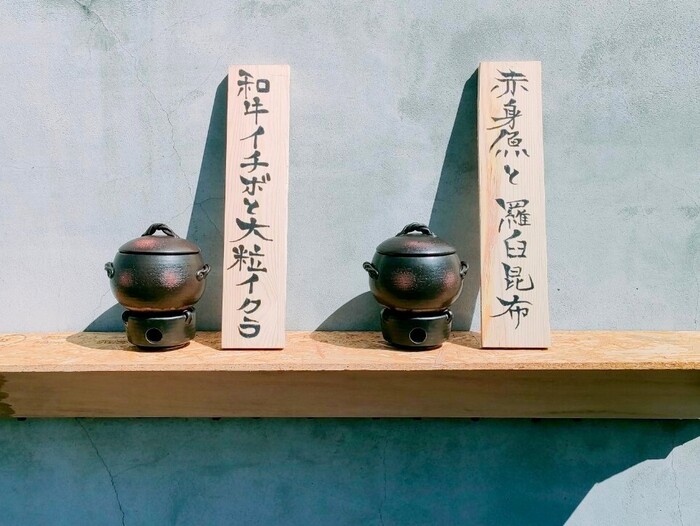 和牛イチボと大粒イクラ
赤身魚と羅臼昆布